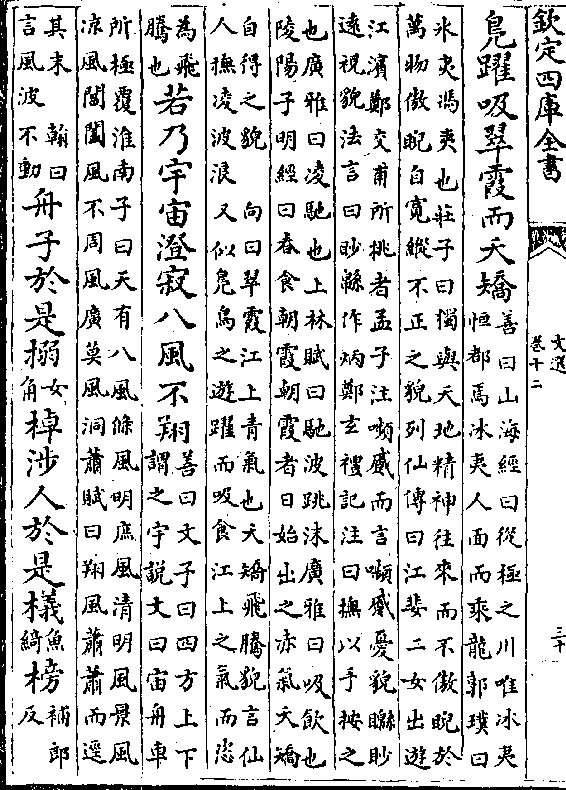 欽定四庫全書
文選
卷十二
三十
鳧躍吸翠霞而夭矯
善曰山海經曰從極之川唯冰夷
恒都焉冰夷人面而乘龍郭璞曰
冰夷馮夷也莊子曰獨與天地精神往來而不傲睨於
萬物傲睨自寛縱不正之貌列仙傳曰江婓二女出遊
江濱鄭交甫所挑者孟子注嚬蹙而言嚬蹙憂貌矊眇
遠視貌法言曰眇緜作炳鄭玄禮記注曰撫以手按之
也廣雅曰凌馳也上林賦曰馳波跳沫廣雅曰吸飲也
陵陽子明經曰春食朝霞朝霞者日始出之赤氣夭矯
自得之貌 向曰翠霞江上青氣也夭矯飛騰貌言仙
人撫凌波浪又似鳧鳥之遊躍而吸食江上之氣而恣
為飛
騰也
若乃宇宙澄寂八風不翔
善曰文子曰四方上下
謂之宇說文曰宙舟車
所極覆淮南子曰天有八風條風明庶風清明風景風
涼風閶闔風不周風廣莫風洞蕭賦曰翔風蕭蕭而逕
其末 翰曰
言風波不動
舟子於是搦
女
角
棹涉人於是檥
魚
綺
榜
補郎
反